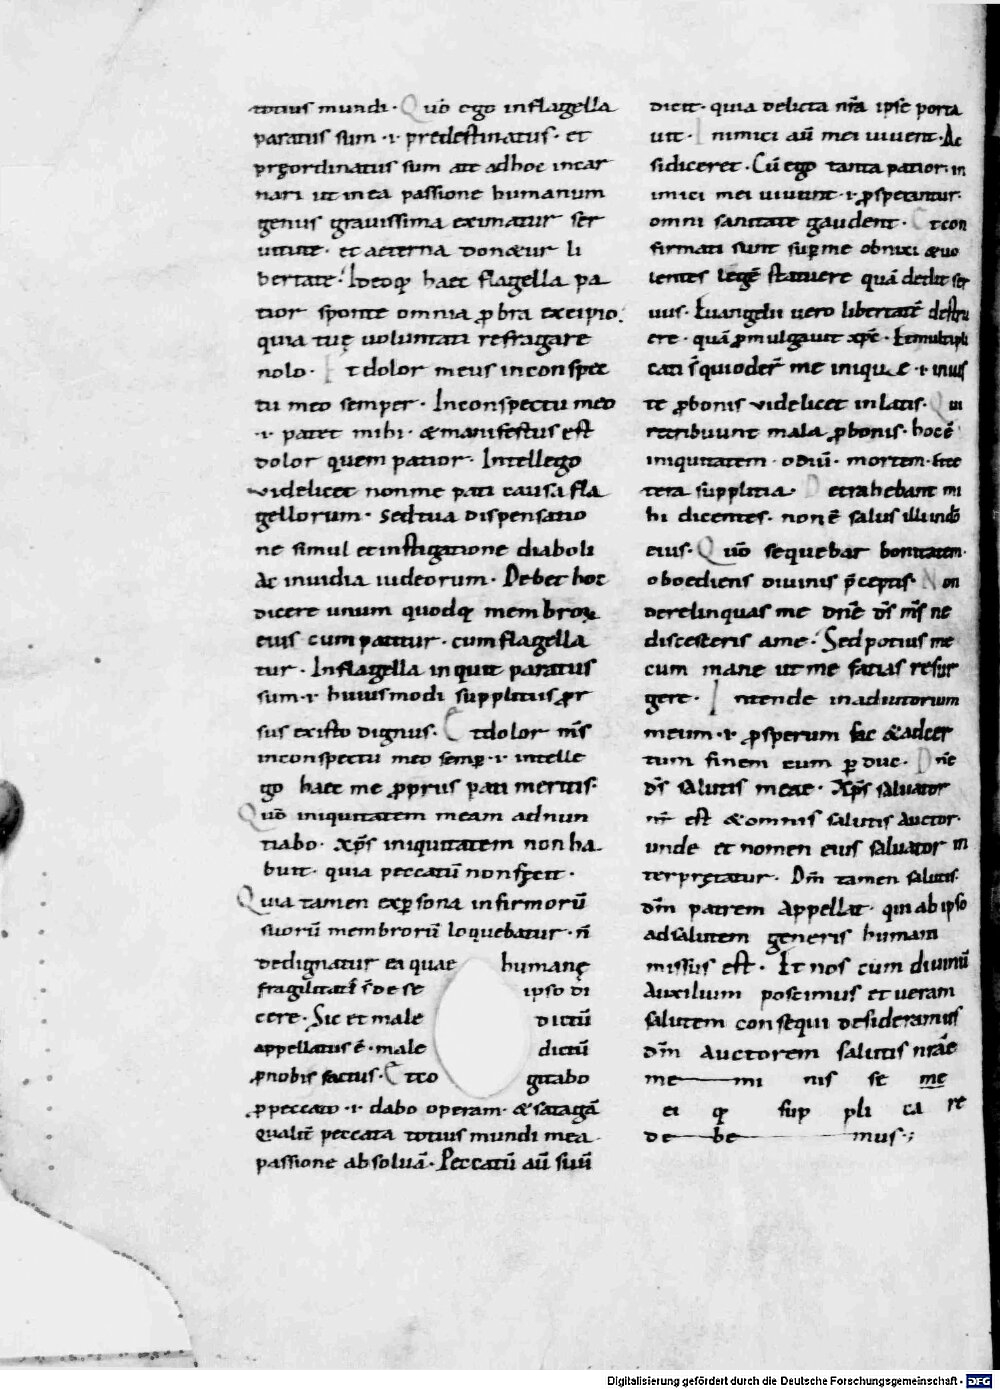 totius mundi· Quō ego inflagella
paratus sum ·i· predestinatus· et
pręordinatus sum ait adhoc incar
nari ut in ea passione humanum
genus gravissima eximatur ser
uitute· et aeterna donetur li
bertate· Ideoq; haec flagella pa
tior sponte omnia ꝓbra excipio.
quia tuę uoluntati refragare
nolo· Et dolor meus inconspec
tu meo semper· Inconspectu meo
·i· patet mihi· & manifestus est
dolor quem patior· Intellego
videlicet nonme pati causa fla
gellorum· sedtua dispensatio
ne simul et instigatione diaboli
ac inuidia iudeorum· Debet hoc
dicere unum quodq; membroꝝ
eius cum patitur· cum flagella
tur· Inflagella inquit paratus
sum·i· huiusmodi suppliciis ꝓr
sus existo dignus· Et dolor m̄s
inconspectu meo semꝑ·i· intelle
go haec me ꝓpriis pati meritis·
Quō iniquitatem meam adnun
tiabo· xp̄s iniquitatem non ha
buit· quia peccatū non fecit·
Quia tamen exꝑsona infirmorū
suorū membrorū loquebatur· n̄
dedignatur ea quae humanę
fragilitati s̄ de se ipso di
cere· Sic et male dictū
appellatus ē· male dictū
ꝓnobis factus· Et co gitabo
ꝓpeccato ·i· dabo operam· & satagā
qualit̄ peccata totius mundi mea
passione absoluā· Peccatū aū suū
dicit· quia delicta nr̄a ipse porta
uit· Inimici aū mei uiuent· Ac
sidiceret· Cū ego tanta patior· in
imici mei uiuunt ·i· ꝓsperantur·
omni sanitate gaudent· Et con
firmati sunt suꝑme obnixi & uo
lentes legē statuere quā dedit ser
uus· Euangelii uero libertatē destru
ere· quā ꝓmulgauit xp̄c· Et multipli
cati s̄ qui oder̄ me iniq e ·i· inius
te ꝓbonis videlicet inlatis· Qui
retribuunt mala ꝓbonis· hoc ē
iniquitatem· odiū· mortem· & cec
tera supplitia· Detrahebant mi
hi dicentes· non ē salus illi in dō
eius· Quō sequebar bonitatem·
oboediens diuinis p̄ceptis· Non
derelinquas me dn̄e ds̄ m̄s ne
discesseris ame· Sed potius me
cum mane ut me facias resur
gere· Intende inadiutorium
meum ·i· ꝓsperum fac & adcer
tum finem eum ꝑduc· Dn̄e
ds̄ salutis meae· Xp̄s saluator
nr̄ est & omnis salutis auctor·
unde et nomen eius saluator in
terprętatur· Dm̄ tamen salutis
dm̄ patrem appellat· qui ab ipso
adsalutem generis humani
missus est· Et nos cum diuinū
auxilium poscimus et ueram
salutem consequi desideramus
dm̄ auctorem salutis nr̄ae
me mi nis se me
ei q; sup pli ca re
de be mus·;
Digitalisierung gefördert durch die Deutsche Forschungsgemeinschaft - DFG